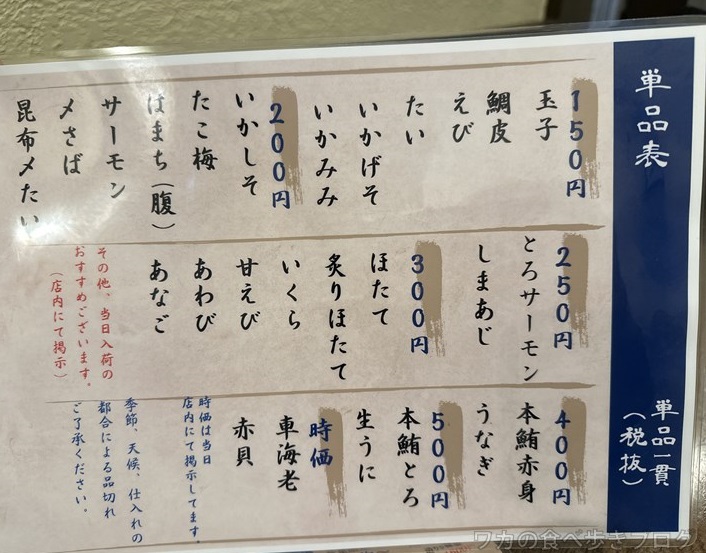 単品表
単品一貫
（税抜）
150円
玉子
鯛皮
えび
たい
いかげそ
いかみみ
200円
いかしそ
たこ梅
はまち（腹）
サーモン
〆さば
昆布〆たい
250円
とろサーモン
しまあじ
300円
ほたて
炙りほたて
いくら
甘えび
あわび
あなご
その他、当日入荷の
おすすめございます。
（店内にて掲示）
400円
本鮪赤身
うなぎ
500円
本鮪とろ
生うに
時価
車海老
赤貝
時価は当日
店内にて掲示してます。
季節、天候、仕入れの
都合による品切れ
ご了承ください。
ワカの食べ歩きブログ